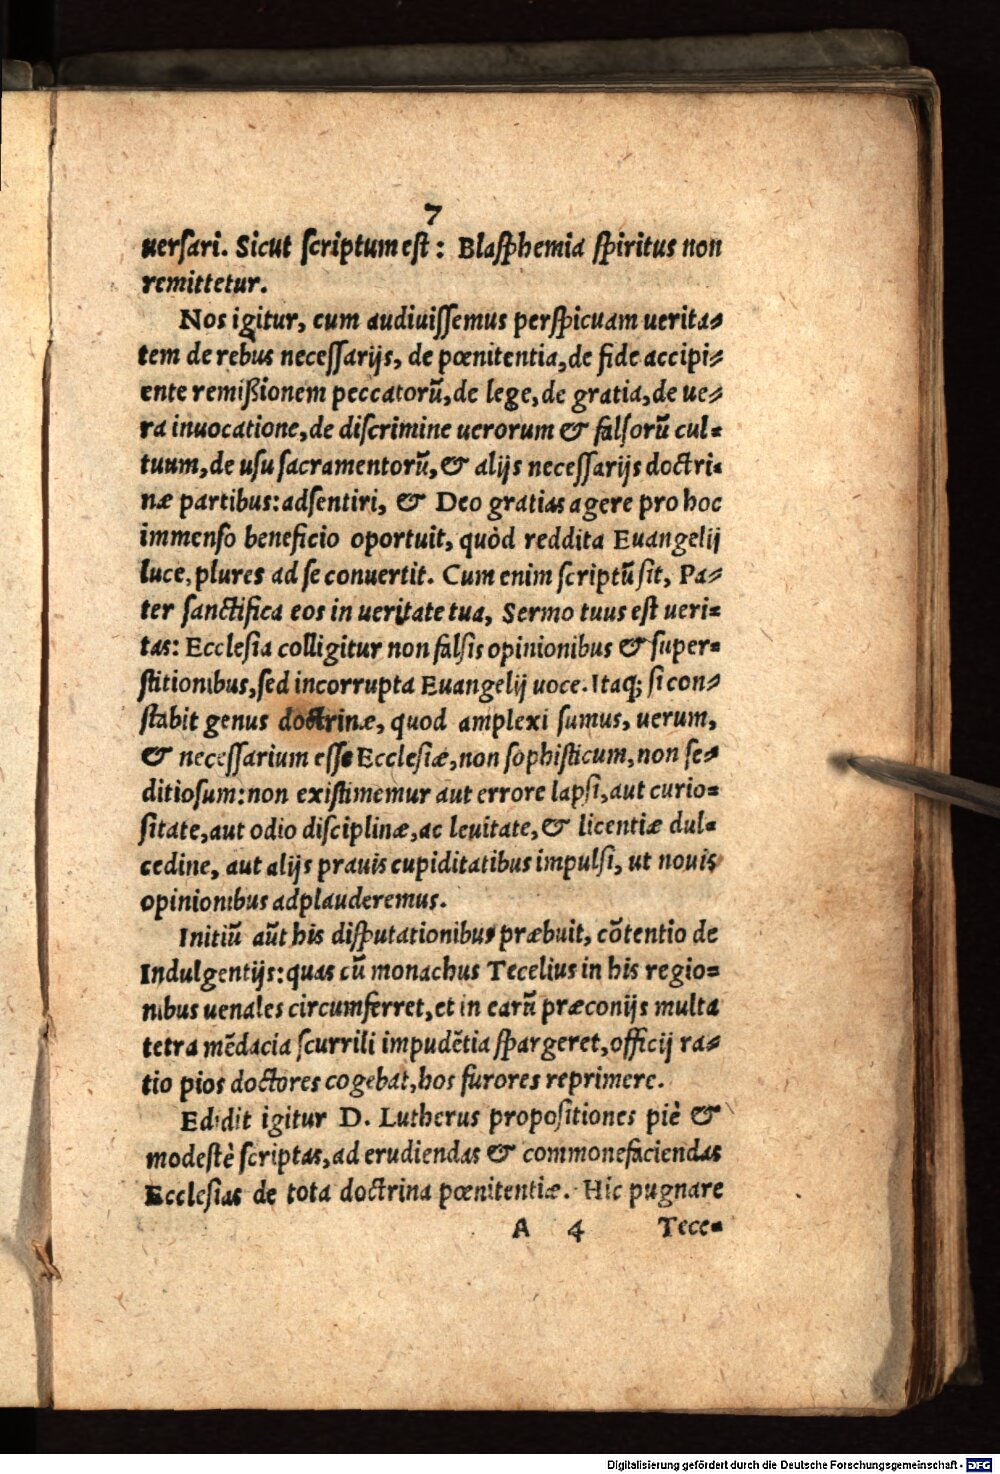 7
uerſari. Sicut ſcriptum eſt: Blaſphemia ſpiritus non
remittetur.
Nos igitur, cum audiuiſſemus perſpicuam uerita⸗
tem de rebus neceſſarijs, de pœnitentia, de fide accipi⸗
ente remiſſionem peccatorũ, de lege, de gratia, de ue⸗
ra inuocatione, de diſcrimine uerorum & falſorũ cul⸗
tuum, de uſu ſacramentorũ, & alijs neceſſarijs doctri⸗
næ partibus: adſentiri, & Deo gratias agere pro hoc
immenſo beneficio oportuit, quòd reddita Euangelij
luce, plures ad ſe conuertit. Cum enim ſcriptũ ſit, Pa⸗
ter ſanctifica eos in ueritate tua, Sermo tuus eſt ueri⸗
tas: Eccleſia colligitur non falſis opinionibus & ſuper⸗
ſtitionibus, ſed incorrupta Euangelij uoce. Itaq; ſi con⸗
ſtabit genus doctrinæ, quod amplexi ſumus, uerum,
& neceſſarium eſſe Eccleſiæ, non ſophiſticum, non ſe⸗
ditioſum: non exiſtimemur aut errore lapſi, aut curio⸗
ſitate, aut odio diſciplinæ, ac leuitate, & licentiæ dul⸗
cedine, aut alijs prauis cupiditatibus impulſi, ut nouis
opinionibus adplauderemus.
Initiũ aũt his diſputationibus præbuit, cõtentio de
Indulgentijs: quas cũ monachus Tecelius in his regio⸗
nibus uenales circumferret, et in earũ præconijs multa
tetra mẽdacia ſcurrili impudẽtia ſpargeret, officij ra⸗
tio pios doctores cogebat, hos furores reprimere.
Edidit igitur D. Lutherus propoſitiones piè &
modeſtè ſcriptas, ad erudiendas & commonefaciendas
Eccleſias de tota doctrina pœnitentiæ. Hic pugnare
A 4 Tece⸗
Digitalisierung gefördert durch die Deutsche Forschungsgemeinschaft - DFG